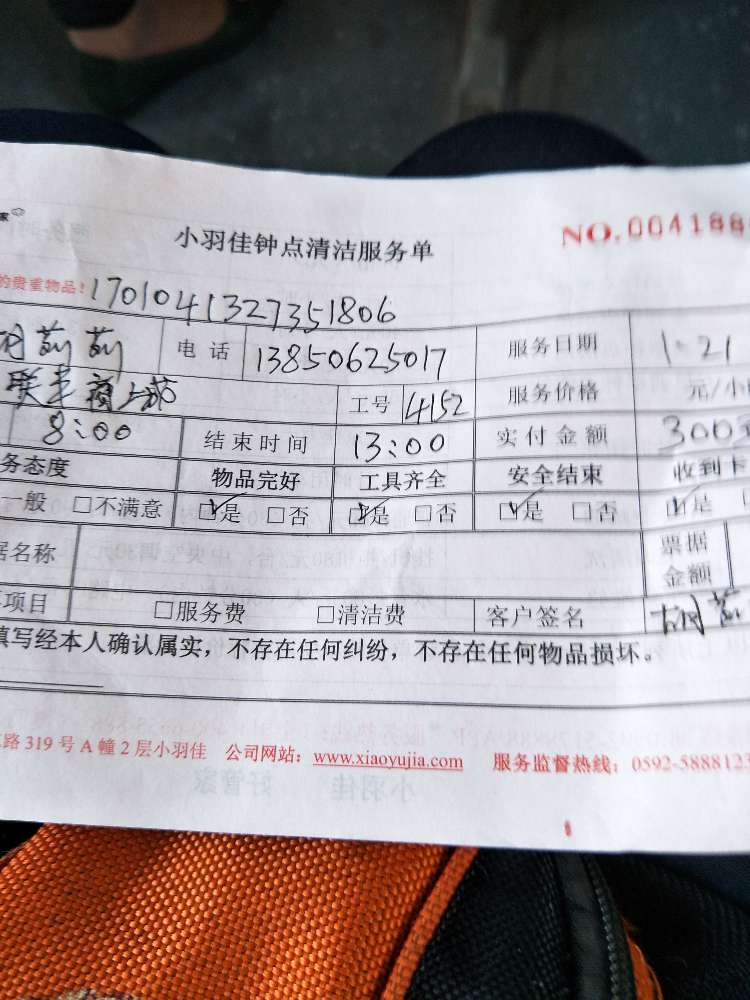 家
小羽佳钟点清洁服务单 NO.004188
的贵重物品! 1701041327351806
电话 13850625017 服务日期 1.21
工号 4152 服务价格 元/小
8:00 结束时间 13:00 实付金额 300元
务态度 物品完好 工具齐全 安全结束 收到卡
一般 □不满意 □是 □否 □是 □否 □是 □否 □是
据名称 票据金额
项目 □服务费 □清洁费 客户签名
填写经本人确认属实，不存在任何纠纷，不存在任何物品损坏。
路 319 号 A 幢 2 层小羽佳 公司网站：www.xiaoyujia.com 服务监督热线：0592-5888123